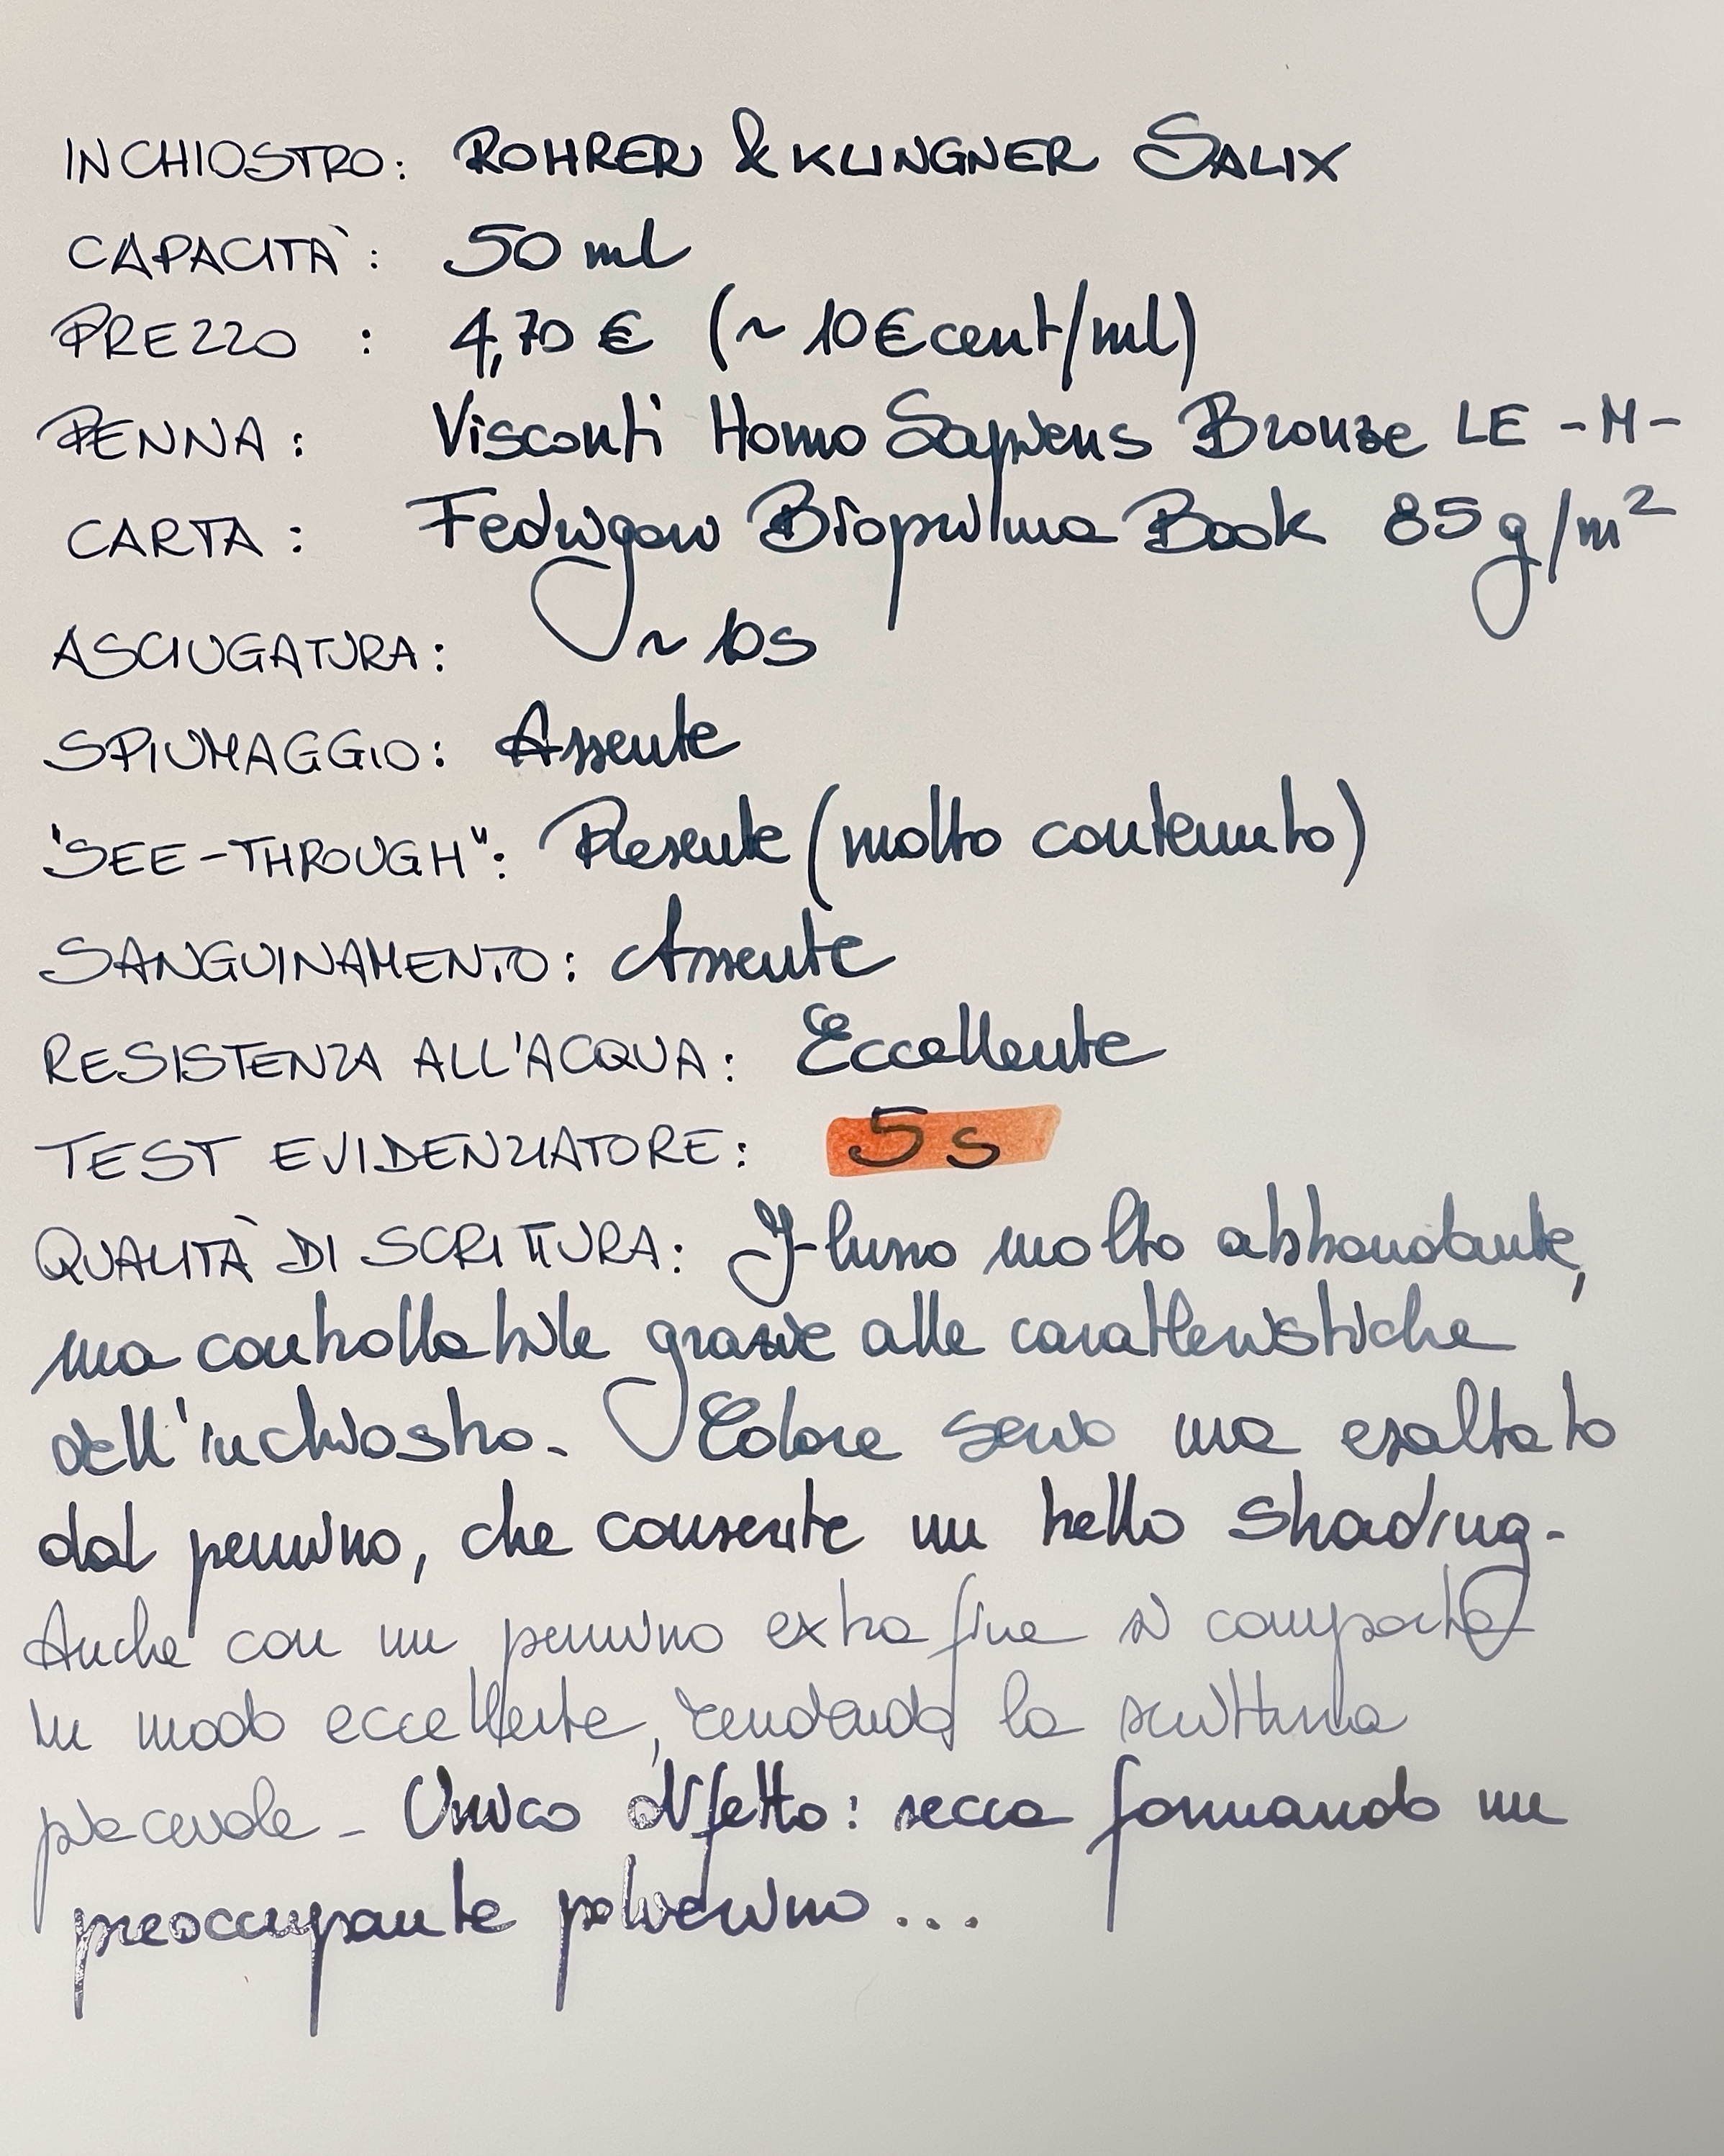 INCHIOSTRO: ROHRER & KLINGNER SALIX
CAPACITÀ: 50 ml
PREZZO : 4,70 € (~ 10 €cent/ml)
PENNA: Visconti Homo Sapiens Bronze LE -M-
CARTA: Fedrigoni Bioprima Book 85 g/m²
ASCIUGATURA: ~ 10s
SPIUMAGGIO: Assente
"SEE-THROUGH": Presente (molto contenuto)
SANGUINAMENTO: Assente
RESISTENZA ALL'ACQUA: Eccellente
TEST EVIDENZIATORE: 5s
QUALITÀ DI SCRITTURA: Flusso molto abbondante,
ma controllabile grazie alle caratteristiche
dell'inchiostro. Colore serio ma esaltato
dal pennino, che consente un bello shading.
Anche con un pennino extra fine si comporta
in modo eccellente, rendendo la scrittura
piacevole. Unico difetto: secca formando un
preoccupante polverino...